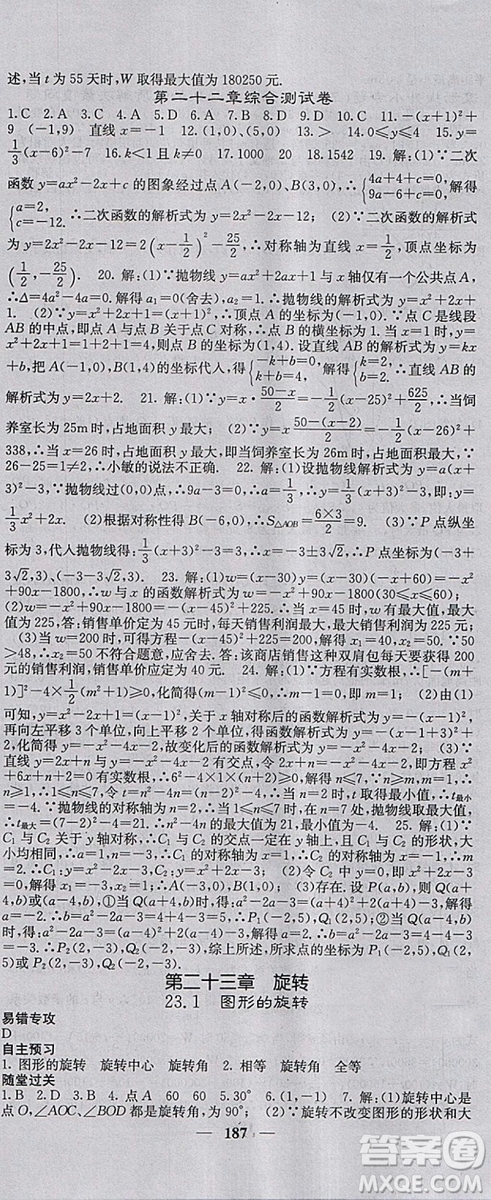 述,当 t 为 55 天时,W 取得最大值为 180250 元.
第二十二章综合测试卷
1.C 2.A 3.C 4.D 5.B 6.A 7.C 8.C 9.B 10.B 11.-(x-1)²+
9 (-1,9) 直线 x=-1 5 大 13.> 14.0≤x≤4 15.y=
1/3(x-6)²-7 16.k>-1且k≠0 17.1000 20 18.1542 19.解:(1)∵二次
函数 y=ax²-2x+c 的图象经过点 A(-2,0),B(3,0),∴{4a+4+c=0, 9a-6+c=0,解得
{a=2, c=-12.∴二次函数的解析式为 y=2x²-2x-12; (2)∵二次函数的解析式为
y=2x²-2x-12=2(x-1/2)²-25/2,∴对称轴为直线 x=1/2,顶点坐标为
(1/2,-25/2). 20.解:(1)∵抛物线 y=ax²+2ax+1 与 x 轴仅有一个公共点 A,
∴Δ=4a²-4a=0,解得 a₁=0(舍去),a₂=1.∴抛物线的解析式为 y=x²+2x+
1. (2)∵y=x²+2x+1=(x+1)²,∴顶点 A 的坐标为(-1,0).∵点 C 是线段
AB 的中点,即点 A 与点 B 关于点 C 对称,∴点 B 的横坐标为 1.当 x=1 时,y=
x²+2x+1=1+2+1=4,则点 B 的坐标为(1,4).设直线 AB 的解析式为 y=kx
+b,把 A(-1,0),B(1,4)代入得{-k+b=0, k+b=4,解得{k=2, b=2.∴直线 AB 的
解析式为 y=2x+2. 21.解:(1)∵y=x·(50-x)/2=-1/2(x-25)²+625/2,∴当饲
养室长为 25m 时,占地面积最大. (2)∵y=x·(50-(x-2))/2=-1/2(x-26)²+
338,∴当 x=26 时,占地面积最大,即当饲养室长为 26m 时,占地面积最大.∵
26-25=1≠2,∴小敏的说法不正确. 22.解:(1)设抛物线解析式为 y=a(x+
3)²+3,∵抛物线过(0,0)点,∴9a+3=0,∴a=-1/3.∴y=-1/3(x+3)²+3,即 y=
1/3x²+2x. (2)根据对称性得 B(-6,0),∴S△AOB=(6×3)/2=9. (3)∵P 点纵坐
标为 3,代入抛物线得:1/3(x+3)²-3=3,∴x₁=-3+3√2,x₂=-3-3√2,∴P(-3+
3√2,3)或(-3-3√2,3). 23.解:(1)w=(x-30)·y=(x-30)(-x+60)=-x²
+90x-1800,∴w 与 x 的函数关系式为 w=-x²+90x-1800(30≤x≤60).
(2)w=-x²+90x-1800=-(x-45)²+225.∵-1<0,∴当 x=45 时,w 有最大值,最大
值为 225.答:销售单价定为 45 元时,每天销售利润最大,最大利润为 225 元;
(3)当 w=200 时,可得方程-(x-45)²+225=200,解得 x₁=40,x₂=50.∵50
>48,∴x₂=50 不符合题意,应舍去.答:该商店销售这种双肩包每天要获得 200
元的销售利润,销售单价应定为 40 元. 24.解:(1)∵方程有实数根,∴[-(m-
1)]²-4×[-(m²+1)]≥0,化简得-(m-1)²≥0,∴m=1; (2)由(1)可
知,y=x²-2x+1=(x-1)²,关于 x 轴对称后的函数解析式为 y=-(x-1)²,
再向左平移 3 个单位,向上平移 2 个单位后的函数解析式为 y=-(x-1+3)²
+2,化简得 y=-x²-4x-2,∴变化后的函数解析式为 y=-x²-4x-2;(3)∵
直线 y=2x+n 与变化后的图象有公共点,∴2x+n=-x²-4x-2,即方程 x²
+6x+n+2=0 有实数根,∴6²-4(n+2)≥0,解得 n≤7,∵t=n²-4n=(n-2)²-
4,∴抛物线的对称轴为 n=2,∵n≤7,∴t 在 n=7 处,t 有最大值;在 n=2 处,t最小=-
4,t最大=(7-2)²-4=21,∴t 的最大值为 21,最小值为-4. 25.解:(1)∵
C₁ 与 C₂ 关于 y 轴对称,∴C₁ 与 C₂ 的交点一定在 y 轴上,且 C₁ 与 C₂ 的形状,大
小均相同,∴a=1,n=-3,∴C₁ 的对称轴为 x=1,∴C₂ 的对称轴为 x=-1,∴m=2,
∴a=1,m=2,n=-3; (2)A(-3,0),B(1,0); (3)存在.设 P(a,b),则 Q(a+
4,b)或(a-4,b),①当 Q(a+4,b)时,得:a²-2a-3=(a+4)²+2(a+4)-3,解得
a=-2.∴b=a²-2a-3=4+4-3=5,∴P₁(-2,5),Q₁(2,5).②当 Q(a-4,b)时,
得:a²-2a-3=(a-4)²+2(a-4)-3,解得 a=2.∴b=a²-2a-3=4-4-3=
-3,∴P₂(2,-3),Q₂(-2,-3).综上所述,所求点的坐标为 P₁(-2,5),Q₁(2,
5)或 P₂(2,-3),Q₂(-2,-3).
第二十三章 旋转
23.1 图形的旋转
易错专攻
D
自主预习
1.图形的旋转 旋转中心 旋转角 2.相等 旋转角 全等
随堂过关
1.B 2.D 3.B 4.点A 60 5.30° 6.1 7.解:(1)由题知旋转中心是
点O,∠AOC、∠BOD 都是旋转角,为 90°; (2)∵旋转不改变图形的形状和大
187
答案圈
MXQE.COM